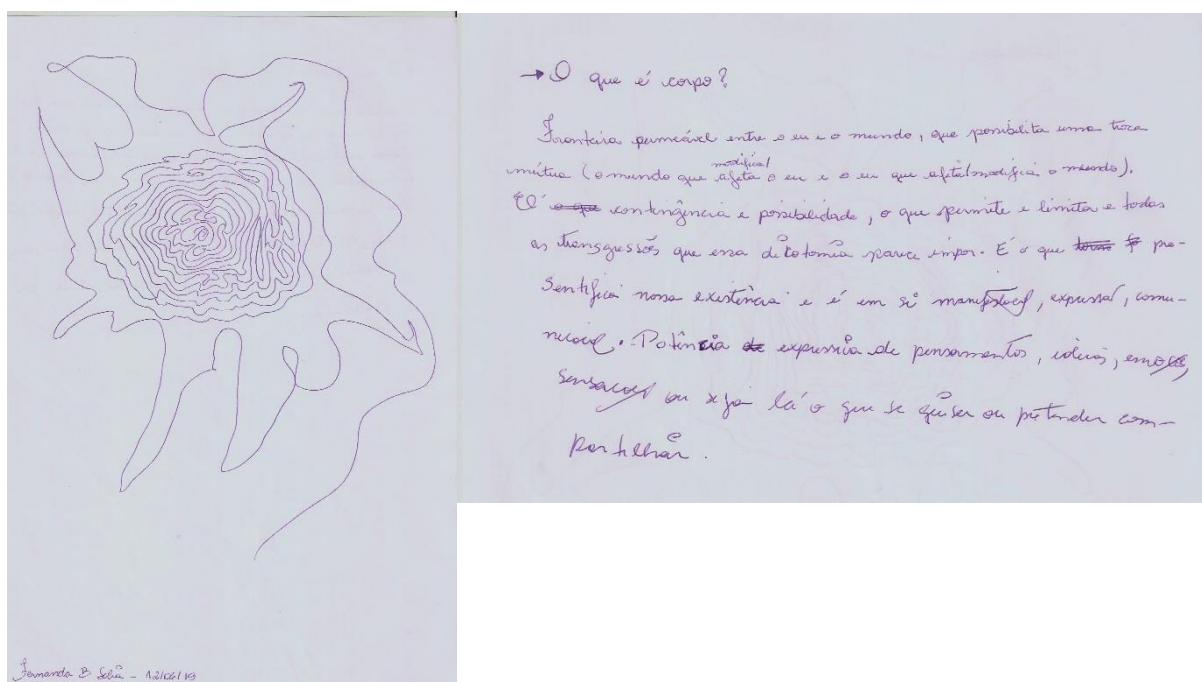 → O que é corpo?
Fronteira permeável entre o eu e o mundo, que possibilita uma troca
mútua (o mundo que afeta/modifica o eu e o eu que afeta/modifica o mundo).
É contingência e possibilidade, o que permite e limita e todas
as transgressões que essa dicotomia parece impor. É o que pre-
sentifica nossa existência e é em si manifestação, expressão, comu-
nicação. Potência expressiva de pensamentos, ideias, emoções,
sensações ou seja lá o que se quiser ou pretender com-
partilhar.
Fernanda B - 12/06/19